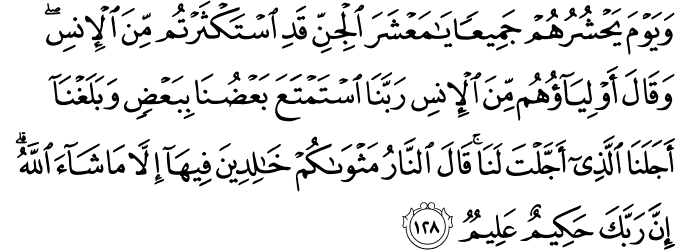 وَيَوْمَ يَحْشُرُهُمْ جَمِيعًا يَـٰمَعْشَرَ ٱلْجِنِّ قَدِ ٱسْتَكْثَرْتُم مِّنَ ٱلْإِنسِ ۖ
وَقَالَ أَوْلِيَآؤُهُم مِّنَ ٱلْإِنسِ رَبَّنَا ٱسْتَمْتَعَ بَعْضُنَا بِبَعْضٍ وَبَلَغْنَآ
أَجَلَنَا ٱلَّذِىٓ أَجَّلْتَ لَنَا ۚ قَالَ ٱلنَّارُ مَثْوَىٰكُمْ خَـٰلِدِينَ فِيهَآ إِلَّا مَا شَآءَ ٱللَّهُ ۗ
إِنَّ رَبَّكَ حَكِيمٌ عَلِيمٌ ١٢٨